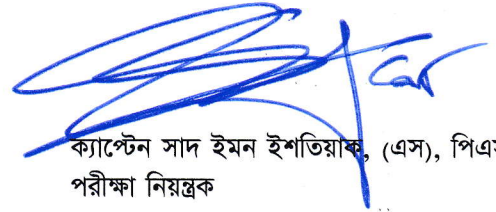 ক্যাপ্টেন সাদ ইমন ইশতিয়াক, (এস), পিএস
পরীক্ষা নিয়ন্ত্রক